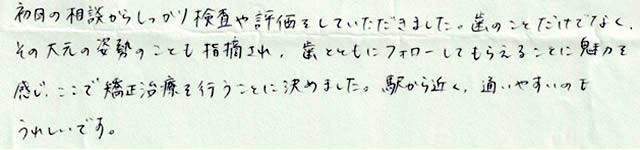 初回の相談からしっかり検査や評価をしていただきました。歯のことだけでなく、
その大元の姿勢のことも指摘され、歯とともにフォローしてもらえることに魅力を
感じ、ここで矯正治療を行うことに決めました。駅から近く、通いやすいのも
うれしいです。